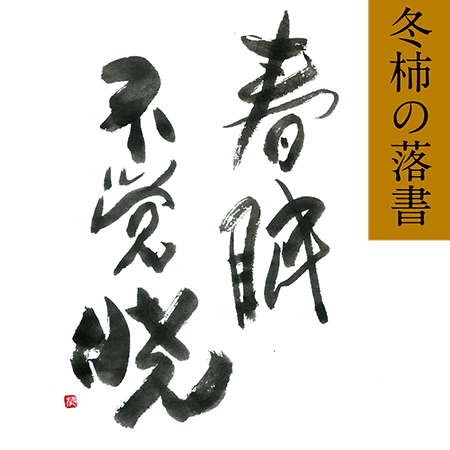 冬柿の落書
春眠
不覚暁